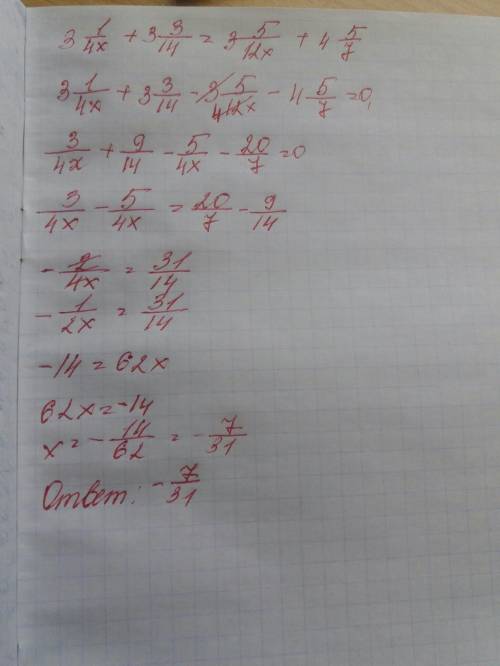 3 1/4x + 3 3/14 = 3 5/12x + 4 5/7
3 1/4x + 3 3/14 - 3 5/412x - 4 5/7 = 0,
3/4x + 9/14 - 5/4x - 20/7 = 0
3/4x - 5/4x = 20/7 - 9/14
- 2/4x = 31/14
- 1/2x = 31/14
-14 = 62x
62x = -14
x = - 14/62 = - 7/31
Ответ: - 7/31